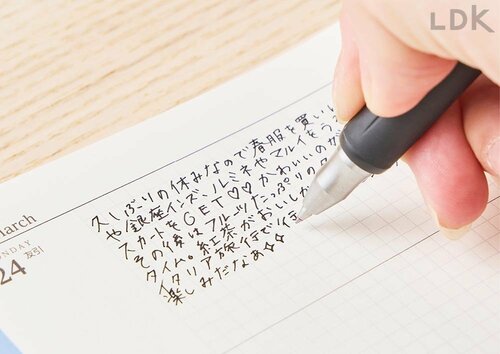 LDK
March
MONDAY
24 友引
久しぶりの休みなので春服を買いに
や銀座インズ、ルミネやマルイをう
スカートをGET♡♡かわいいの
その後はフルーツたっぷりの
タイム。紅茶がおいしか
イタリア旅行も行
楽しみだなぁ✧✧